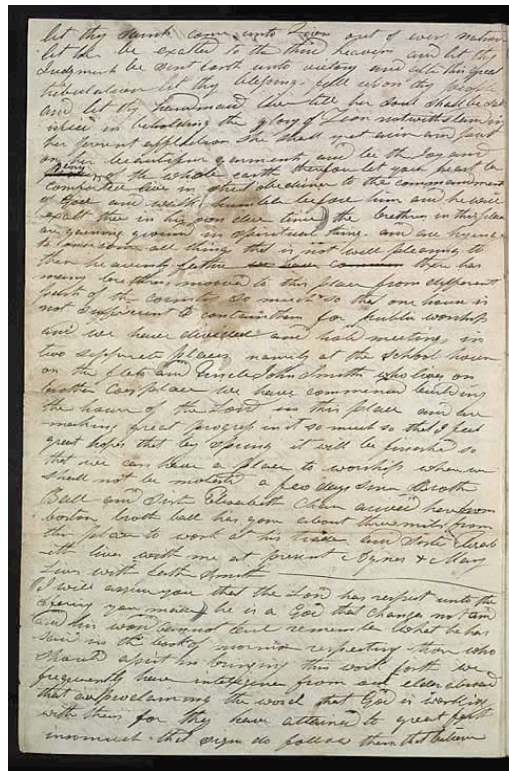 let thy saints come unto Zion out of every nation
let her be exalted to the third heavens and let thy
Judgment be sent forth unto victory and after this great
tribulation let thy blessing fall upon thy people
and let thy handmaid live till her Soul shall be
in beholding the glory of Zion notwithstanding
her present affliction She shall yet arise and put
on her beautiful garments and be the Joy and
glory of the whole earth therefore let your heart be
comforted live in strict obedience to the commandments
of God and walk humble before him and he will
exalt thee in his own due time the brethren in this place
are gaining ground in spiritual things and are trying
to overcom all thing that is not well pleasing to
their heavenly father there has
many brethren mooved to this place from different
parts of the country so much so that one house is
not sufficient to contain them for public worship
and we have divided and hold meetings in
two seperate places namely at the School house
on the flats and Uncle John Smiths who lives on
brother place we have commenced building
the house of the Lord in this place and are
making great progress in it so much so that I feel
great hopes that by spring it will be finished so
that we can have a place to worship where we
shall not be molested a few days since Broth
Ball and Sister Elisabeth Chase arived here from
boston broth ball has gone about three miles from
this place to work at his trade and Sister
lives with me at present Agnes & Mary
lives with
I will assure you that the Lord has respect unto the
offering you made he is a God that changes not and
his word cannot remember what he has
said in the book of mormon respecting those who
should assist in bringing this work forth we
frequently have inteligence from our elders abroad
that are proclaiming the word that God is working
with them for they have attained to great faith
insomuch that signs do follow them that believe